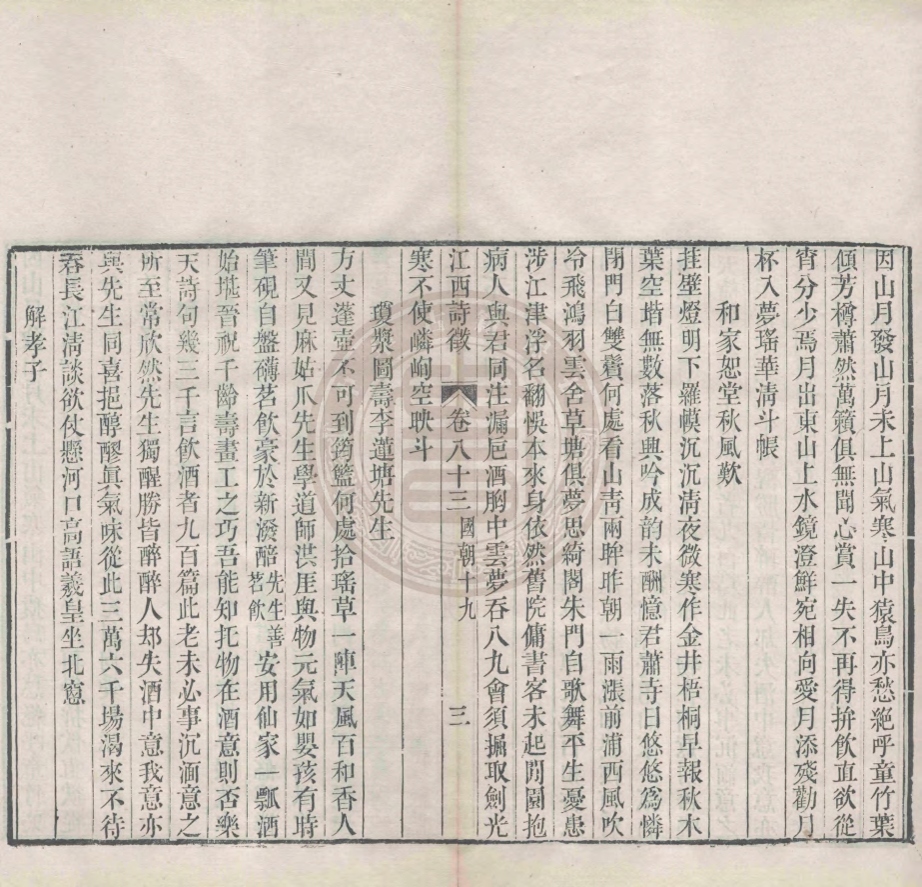 因山月發山月未上山氣寒山中猿鳥亦愁絕呼童竹葉
傾芳樽蕭然萬籟俱無聞心賞一失不再得拚飲直欲從
宵分少焉月出東山上水鏡澄鮮宛相向愛月添殘勸月
杯入夢瑤華淸斗帳
和家恕堂秋風歎
挂壁燈明下羅幙沉沉淸夜微寒作金井梧桐早報秋木
葉空堦無數落秋興吟成韵未酬憶君蕭寺日悠悠爲憐
閉門白雙鬢何處看山靑兩眸昨朝一雨漲前浦西風吹
冷飛鴻羽雲舍草塘俱夢思綺閣朱門自歌舞平生憂患
涉江津浮名翻悞本來身依然舊院傭書客未起閒園抱
病人與君同注漏巵酒胸中雲夢呑八九會須掘取劍光
江西詩徵 卷八十三 國朝十九 三
寒不使嶙峋空映斗
瓊漿圖壽李蓮塘先生
方丈蓬壺不可到筠籃何處拾瑤草一陣天風百和香人
間又見麻姑爪先生學道師洪厓與物元氣如嬰孩有時
筆硯自盤礴茗飮豪於新潑醅先生善茗飮安用仙家一瓢酒
始堪晉祝千齡壽畫工之巧吾能知托物在酒意則否樂
天詩句幾三千言飮酒者九百篇此老未必事沉湎意之
所至常欣然先生獨醒勝皆醉醉人却失酒中意我意亦
與先生同喜挹醇醪眞氣味從此三萬六千場渴來不待
呑長江淸談欲仗懸河口高語羲皇坐北窻
解孝子